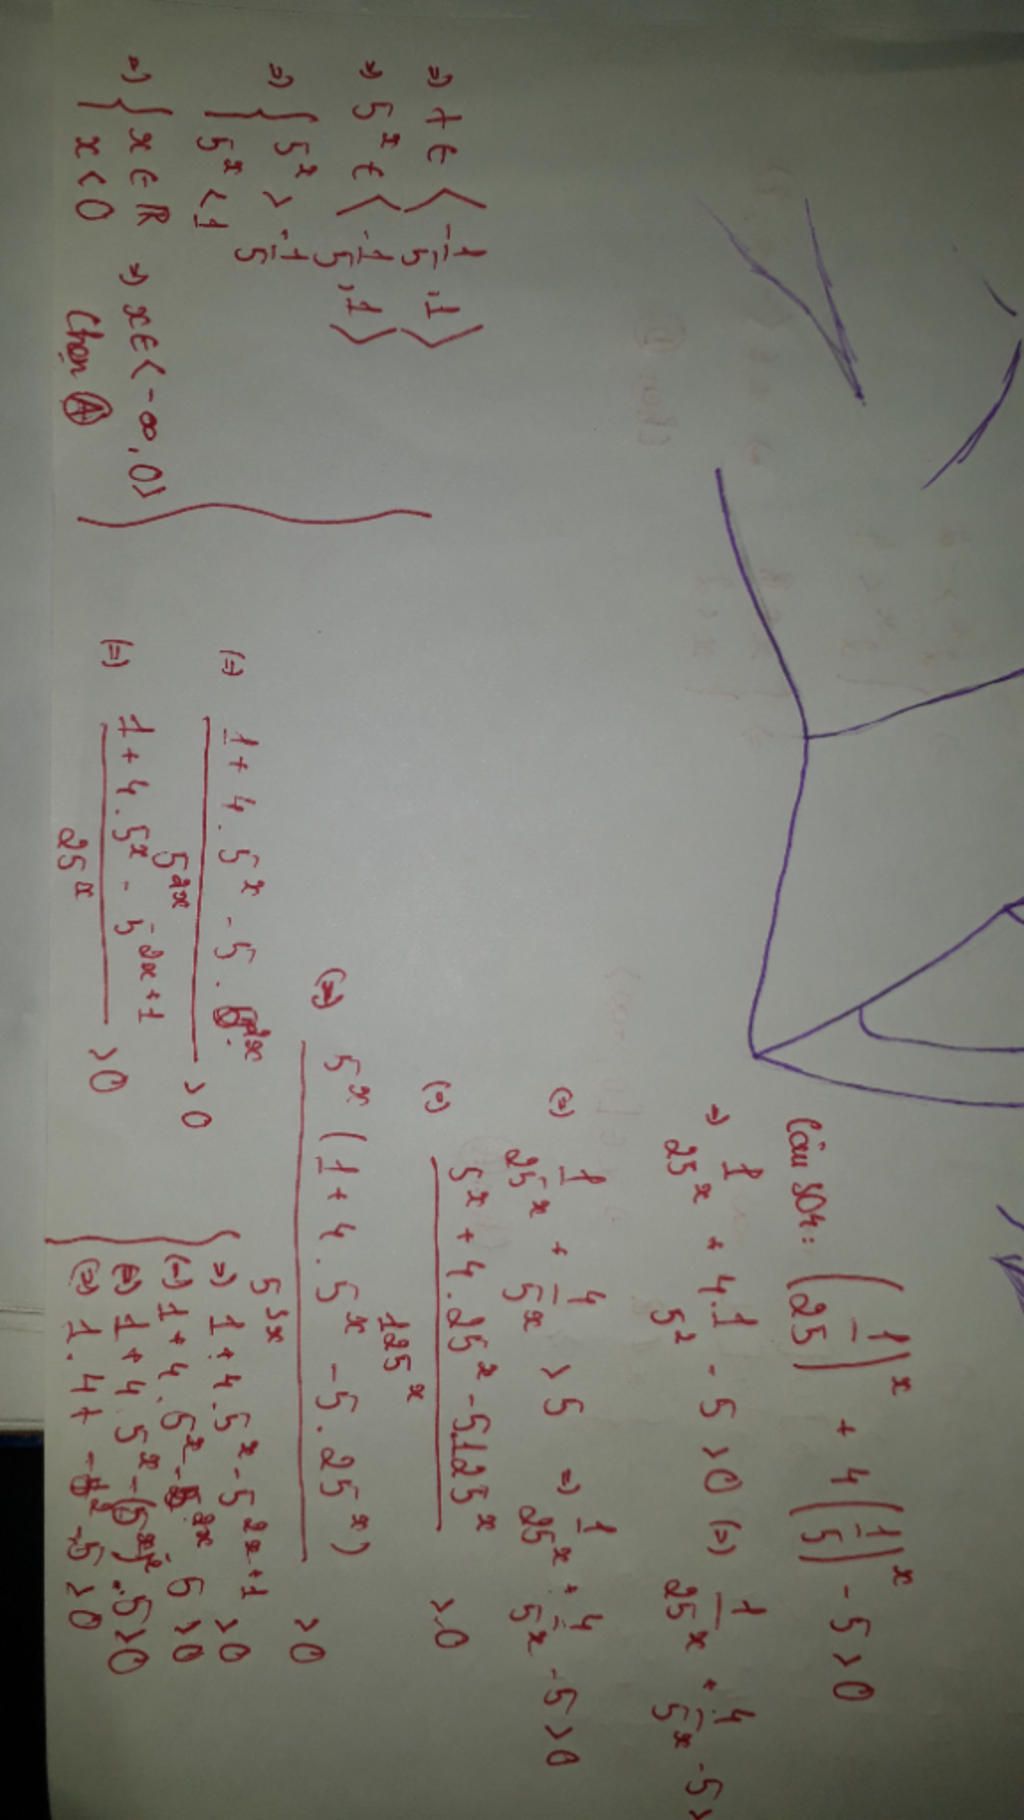 Câu 804: (1/25)^x + 4(1/5)^x - 5 > 0
=) 1/25^x + 4.1/5^2 - 5 > 0 (=) 1/25^x + 4/5^x - 5 >
(=) 1/25^x + 4/5^x > 5 =) 1/25^x + 4/5^x - 5 > 0
(=) (5^x + 4.25^x - 5.125^x)/125^x > 0
(=) 5^x (1 + 4.5^x - 5.25^x)/5^3x > 0
(=) (1 + 4.5^x - 5.5^2x)/5^2x > 0
(=) (1 + 4.5^x - 5^2x+1)/25^x > 0
=) 1 + 4.5^x - 5^2x+1 > 0
(=) 1 + 4.5^x - 5^2x.5 > 0
(=) 1 + 4.5^x - (5^x)^2.5 > 0
(=) 1.4t - t^2.5 > 0
=) t ∈ <-1/5, 1>
=) 5^x ∈ <-1/5, 1>
=) { 5^x > -1/5
5^x < 1
=) { x ∈ R =) x ∈ <-∞, 0>
x < 0
Chọn A